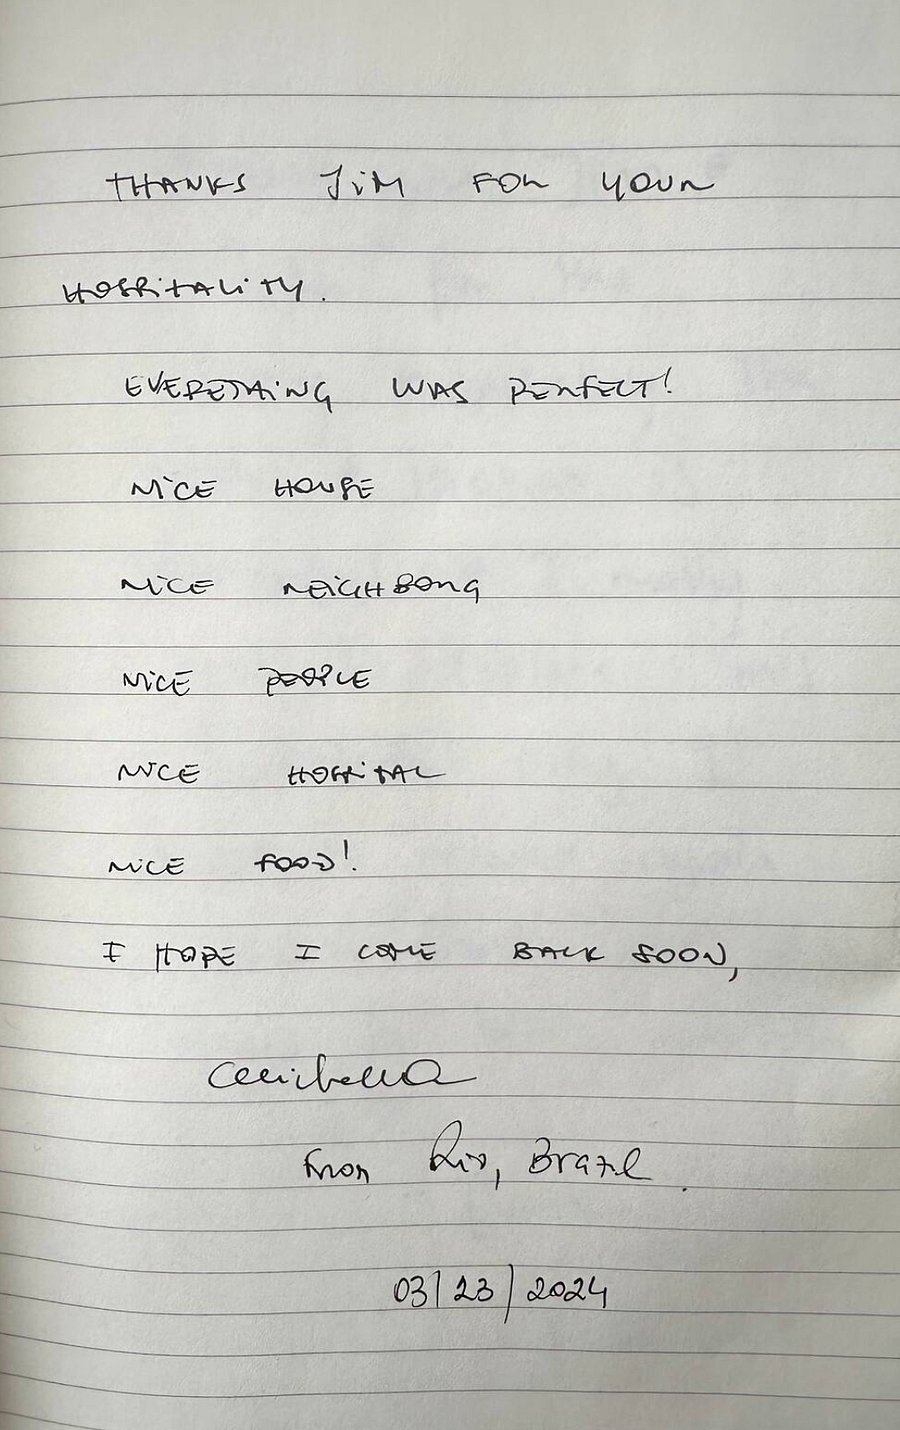 THANKS JIM FOR YOUR
HOSPITALITY.
EVERETHING WAS PERFECT!
NICE HOUSE
NICE
NICE PEOPLE
NICE HOSPITAL
NICE FOOD!
I HOPE I COME BACK SOON,
from Rio, Brazil.
03/23/2024